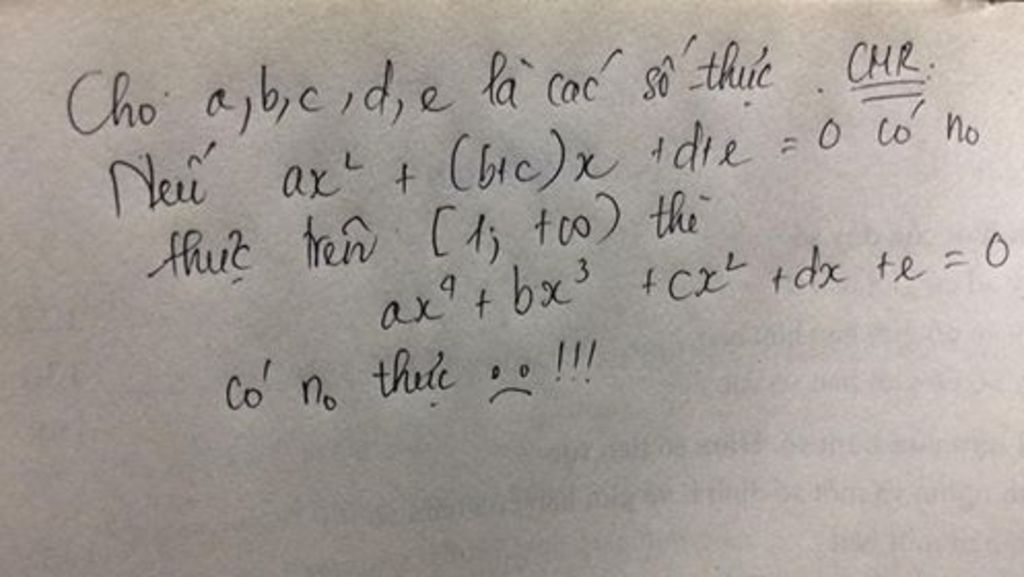 Cho a,b,c,d,e là các số thực. CMR:
Nếu ax² + (b+c)x + d+e = 0 có no
thực trên [1; +∞) thì
ax⁴ + bx³ + cx² + dx + e = 0
có no thực !!!